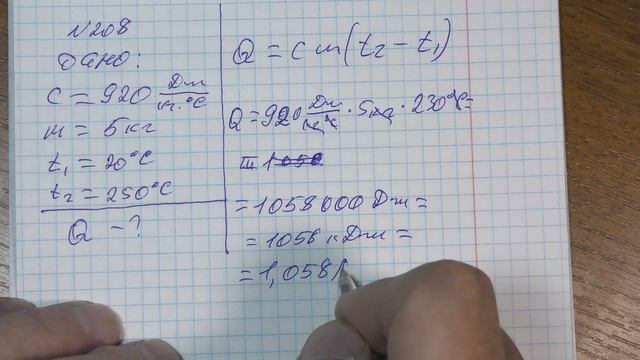 N208
Дано:
c = 920 Дж/кг·°C
m = 5кг
t₁ = 20°C
t₂ = 250°C
Q - ?
Q = cm(t₂ - t₁)
Q = 920 Дж/кг°C · 5кг · 230°C =
= 1058000 Дж =
= 1058 кДж =
= 1,058